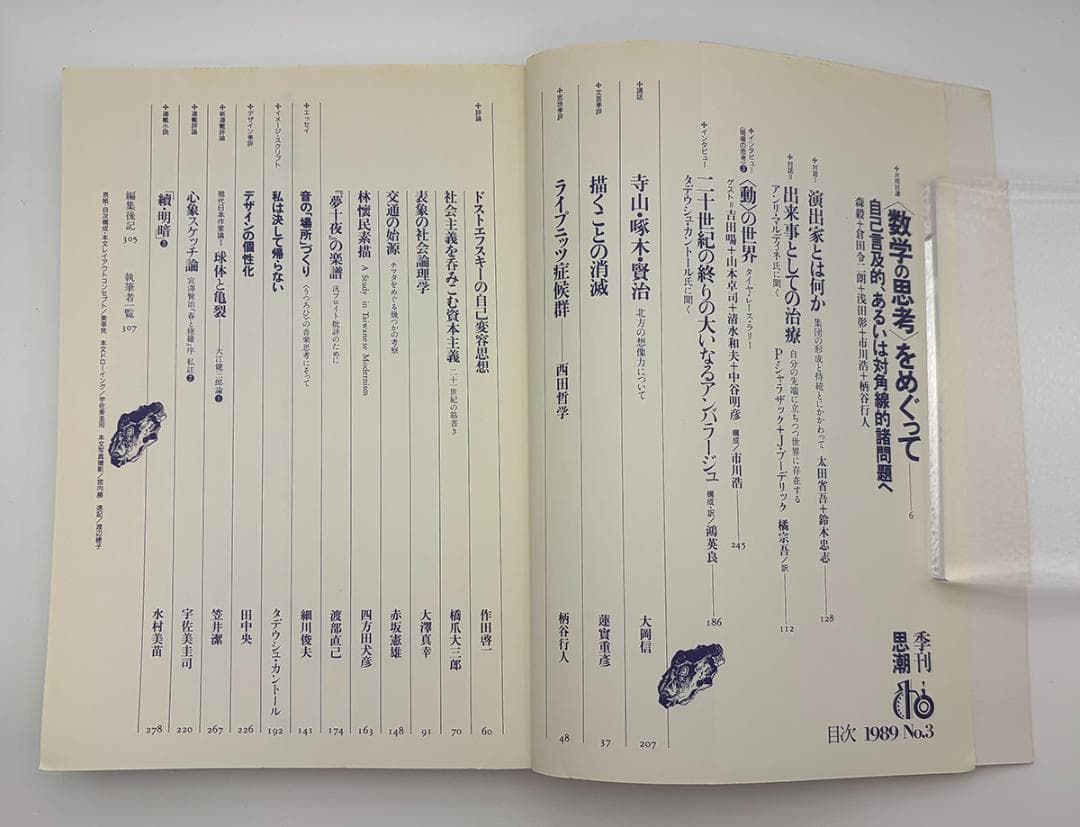 季刊
思潮
目次 1989 No.3
✢共同討議
〈数学の思考〉をめぐって 6
自己言及的、あるいは対角線的諸問題へ
森毅+倉田令二朗+浅田彰+市川浩+柄谷行人
✢対話Ⅰ
演出家とは何か 集団の形成と持続とにかかわって 太田省吾+鈴木忠志 128
✢対話Ⅱ
出来事としての治療 自分の先端に立ちつつ世界に存在する P・ジャ・ラザック+J・ブーデリック 橘宗吾/訳 112
アンリ・マルディネ氏に聞く
✢インタビュー
〈現場の思考〉❸
〈動〉の世界 タイヤ・レース・ラリー
ゲスト=吉田暘+山本卓司+清水和夫+中谷明彦 構成/市川浩 245
✢インタビュー
二十世紀の終りの大いなるアンバラージュ 構成・訳/鴻英良 186
タデウシュ・カントール氏に聞く
✢講話
寺山・啄木・賢治 北方の想像力について 大岡信 207
✢文芸季評
描くことの消滅 蓮實重彦 37
✢思想季評
ライプニッツ症候群 ──西田哲学 柄谷行人 48
✢評論
ドストエフスキーの自己変容思想 作田啓一 60
社会主義を呑みこむ資本主義 二十一世紀の筋書き 橋爪大三郎 70
表象の社会論理学 大澤真幸 91
交通の始源 チマタをめぐる幾つかの考察 赤坂憲雄 148
林懷民素描 A Study in Taiwanese Modernism 四方田犬彦 163
『夢十夜』の楽譜 汎フロイト批評のために 渡部直己 174
✢エッセイ
音の「場所」づくり 〈うつろひ〉の音楽思考にそって 細川俊夫 141
✢イメージ・スクリプト
私は決して帰らない タデウシュ・カントール 192
✢デザイン季評
デザインの個性化 田中央 226
✢新連載評論
現代日本作家論Ⅰ 球体と亀裂 ──大江健三郎論❶ 笠井潔 267
✢連載評論
心象スケッチ論 宮澤賢治『春と修羅』序 私註❷ 宇佐美圭司 220
✢連載小説
「續・明暗」❸ 水村美苗 278
編集後記 305 執筆者一覧 307
表紙・目次構成・本文レイアウトコンセプト/東幸見 本文ドローイング/宇佐美圭司 本文写真撮影/宮内勝 速記/渡辺純子